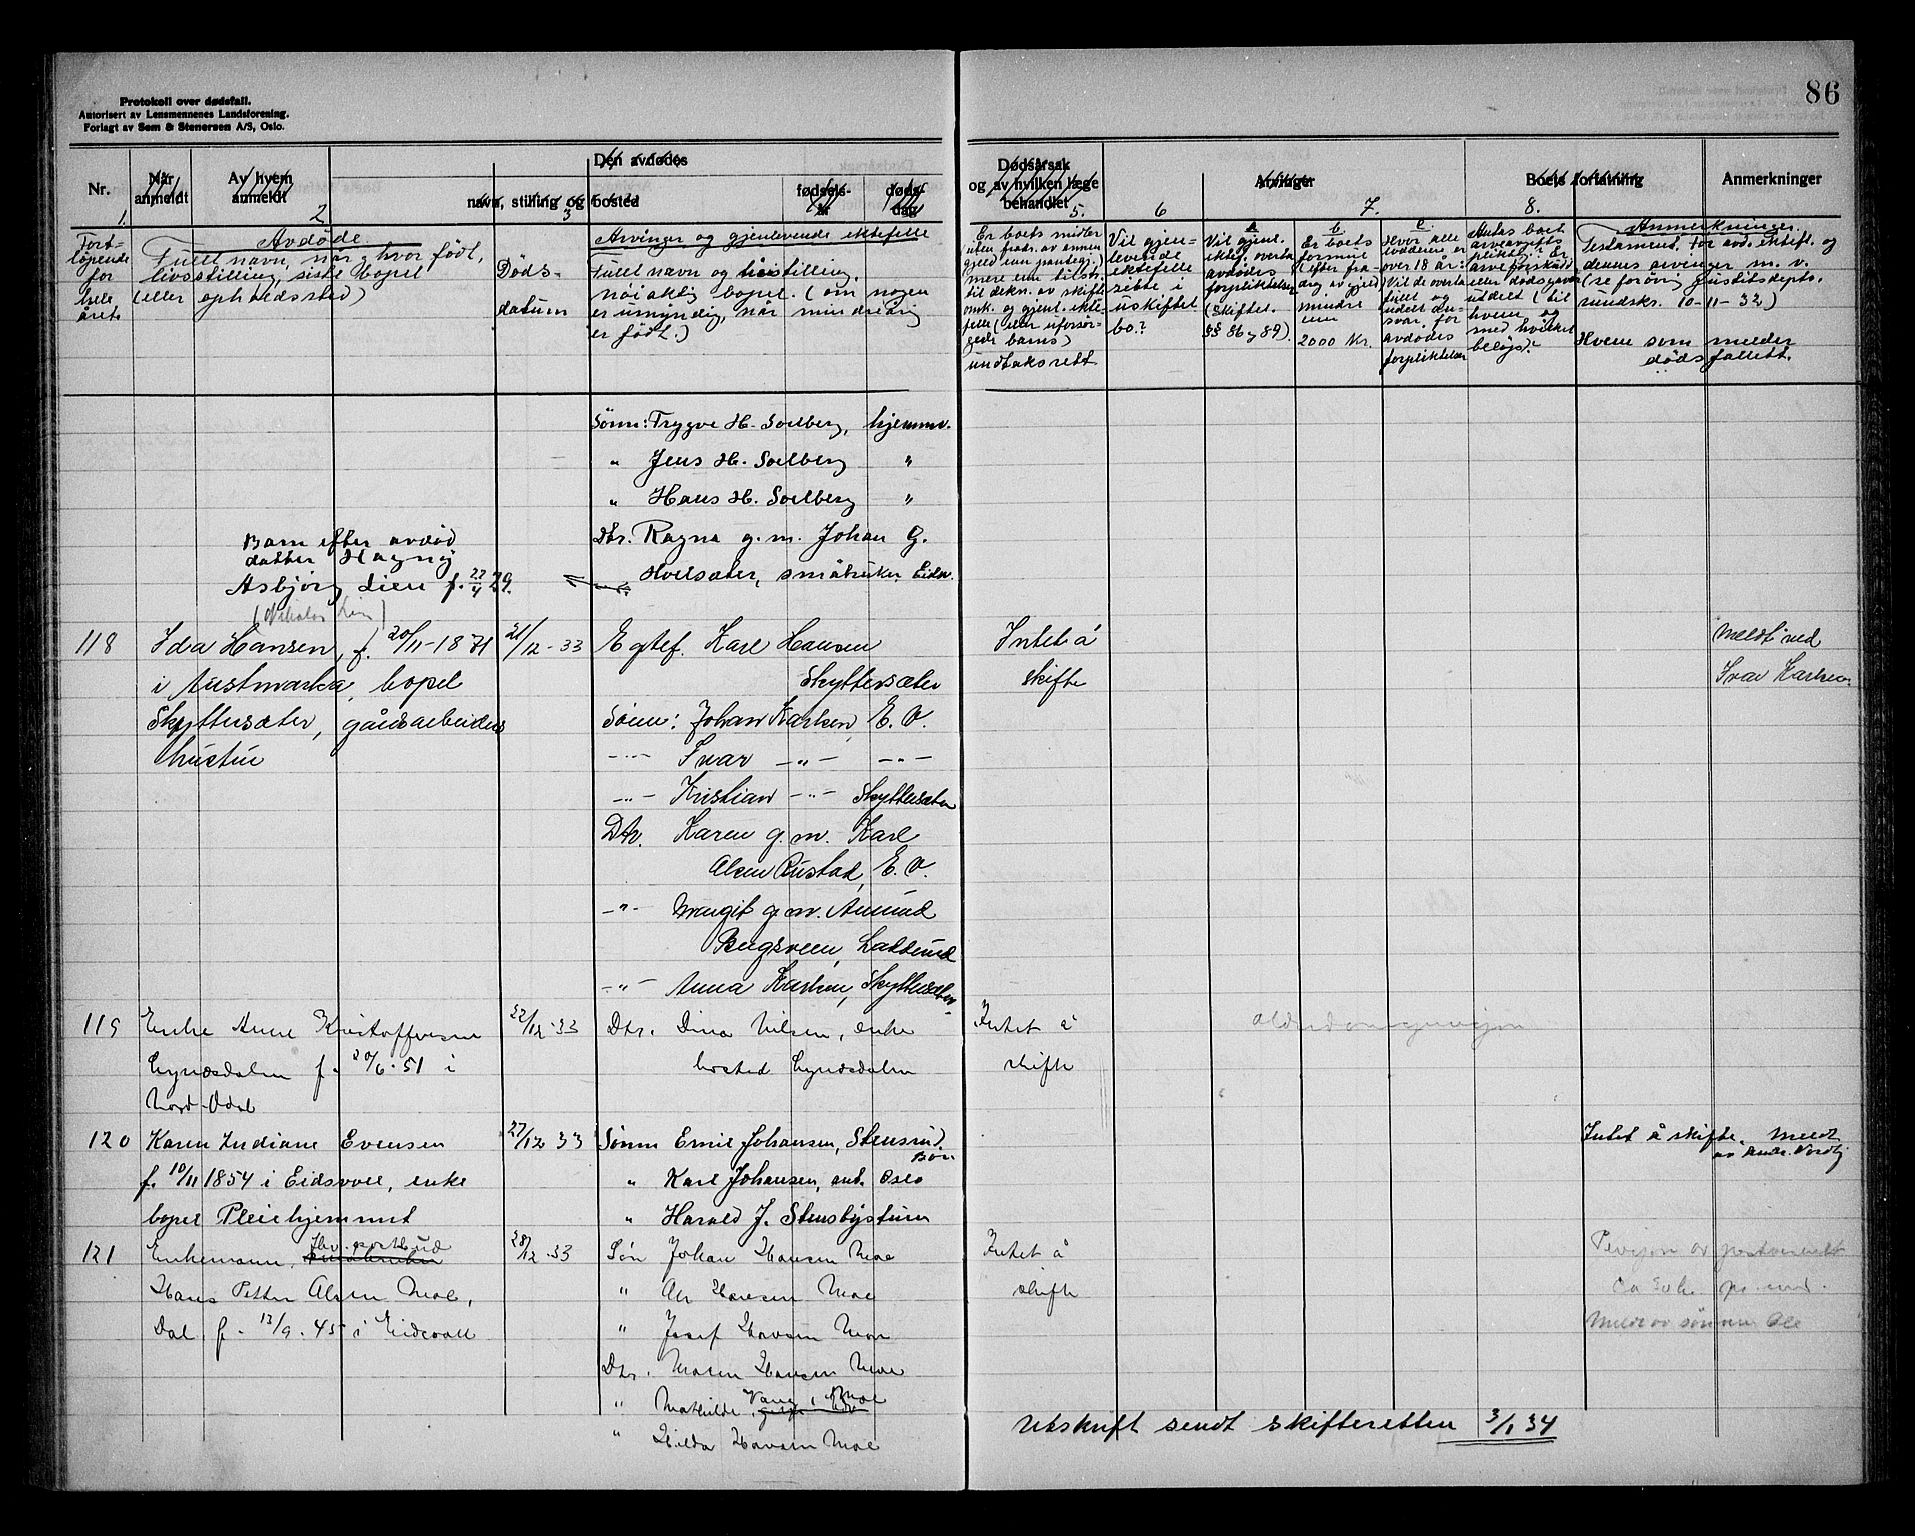 86
Protokoll over dødsfall.
Autorisert av Lensmennenes Landsforening.
Forlagt av Sem & Stenersen A/S, Oslo.
Nr.
Når
anmeldt
Av hvem
anmeldt
Den avdødes
navn, stilling og bosted
fødsels-
år
døds-
dag
Dødsårsak
og av hvilken læge
behandlet
Arvinger
Boets forfatning
Anmerkninger
1. 2 3 5. 6 7. 8.
Fort-
løpende
for
hele
året
Avdøde
Fullt navn, når og hvor født,
livsstilling, siste bopel
(eller opholdssted)
Døds-
datum
Arvinger og gjenlevende ektefelle
Fullt navn og livsstilling,
nøiaktig bopel. (om nogen
er umyndig, når mindreårig
er født.)
Er boets midler
(uten fradr. av annen
gjeld enn pantegj.)
mere enn tilstr.
til dekn. av skifte
omk. og gjenl. ekte-
felle (eller uforsør-
gede barns)
undtaksrett
Vil gjen-
levende
ektefelle
sitte i
uskiftet
bo?
a
Vil gjenl.
ektef. overta
avdødes
forpliktelser
(skiftel.
§§ 86 og 89)
b
Er boets
formue
(efter fra-
drag av gjeld)
mindre
enn
2000 Kr.
c
Hvor alle
loddeiere er
over 18 år:
Vil de overta
fullt og
udelt an-
svar for
avdødes
forpliktelser
Antas boet
arveavgifts
pliktig; er
arveforskudd
eller dødsgaver
utdelt (til
hvem og
med hvilket
beløp)?
Anmerkninger
Testament, for avd. ektef. og
dennes arvinger m. v.
(se forøvrig Justitsdepts.
rundskr. 10-11-32)
Hvem som melder
dødsfallet.
Sønn: Trygve H. Solberg, hjemmev.
" Jens H. Solberg "
" Hans H. Solberg "
Dtr. Ragna g.m. Johan G.
Hvelsæter, småbruker Eidsv.
Barn efter avdød
datter Hagny
Asbjørg Lien f. 22/4 29.
118 Ida Hansen, f. 20/11-1871 21/12-33 Egtef. Karl Hansen Intet å Meldt ved
i Austmarka, bopel Skyttersæter skifte Ivar Karlsen
Skyttersæter, gårdsarbeiders Sønn: Johan Karlsen, E. V.
hustru -"- Ivar -"- -"-
-"- Kristian -"- Skyttersæter
Dtr. Karen g. m. Karl
Olsen Rustad, E. V.
-"- Margit g. m. Amund
Bergsveen,
-"- Anna Karlsen, Skyttersæter
119 Enke Anne Kristoffersen 22/12-33 Dtr. Dina Nilsen, enke Intet å
Lynæsdalen f. 20/6-51 i bosted Lynæsdalen skifte
Nord-Odal
120 Karen Indiane Evensen 27/12 33 Sønn Emil Johansen, Stensrud, Bøn Intet å skifte. Meldt
av Andr. Nordli
f. 10/11 1854 i Eidsvoll, enke " Karl Johansen, ant. Oslo
bopel Pleiehjemmet " Harald J. Stensbystuen
121 Enkemann, fhv. postbud 28/12-33 Søn Johan Hansen Moe Intet å
Hans Petter Olsen Moe, " Ole Hansen Moe skifte
Dal f. 13/9-45 i Eidsvoll " Josef Hansen Moe Meldt av sønnen Ole
Dtr. Maren Hansen Moe
" Mathilde,
" Hilda Hansen Moe
Utskrift sendt skifteretten 3/1 34